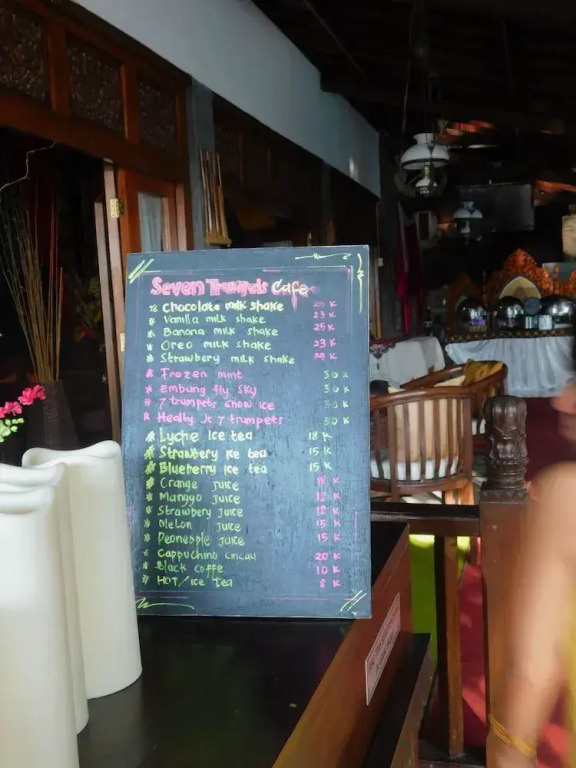 Seven Cafe
Chocolate milk shake
Vanilla milk shake 23 K
Banana milk shake 25 K
Oreo milk shake 23 K
Strawbery milk shake K
Frozen mint 30 K
embung fly sky 30 K
7 trumpets snow ice 30 K
Healhy Jc 7 trumpets 30 K
Lyche ice tea 18 K
Strawbery ice tea 15 K
Blueberry ice tea 15 K
Orange juice K
Manggo juice 12 K
Strawbery juice 12 K
Melon juice 15 K
Peoneople juice 15 K
Cappuchino 20 K
Black coffe 10 K
HOT/ice tea 8 K